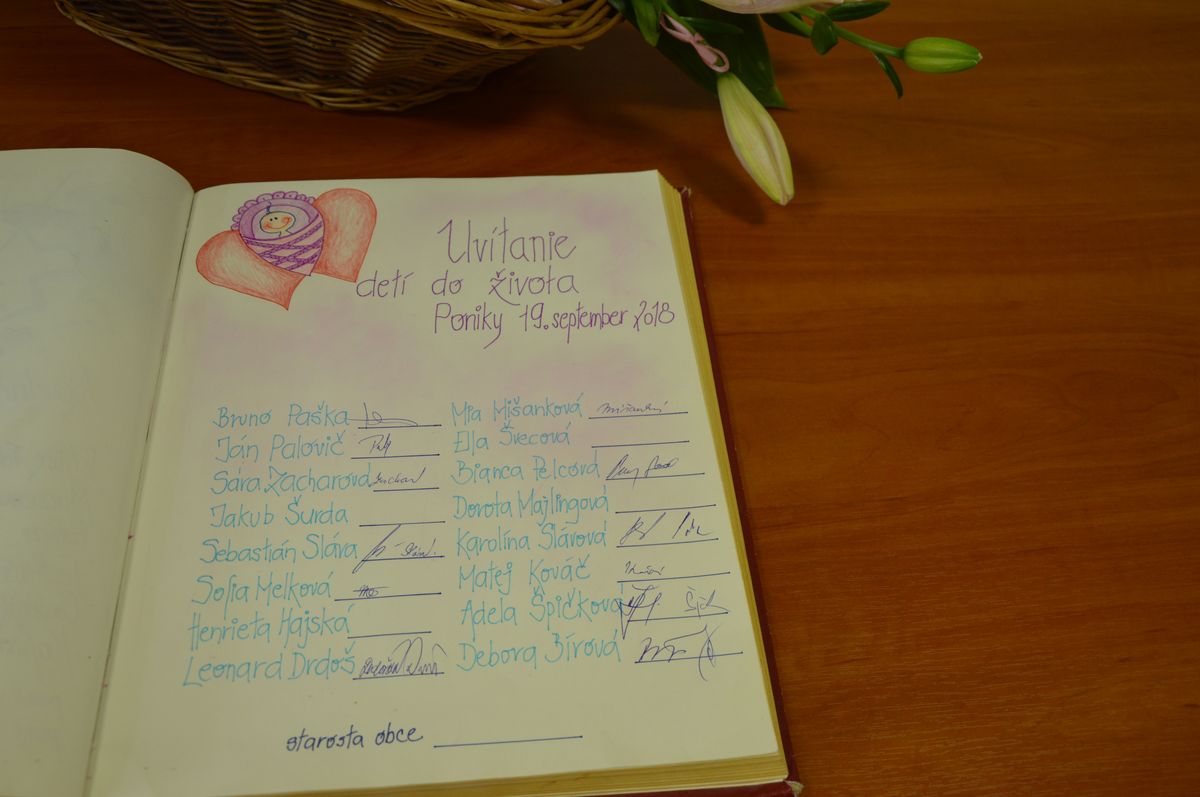 Uvítanie
detí do života
Poniky 19. september 2018
Bruno Paška
Ján Palovič
Sára Zacharová
Jakub Šurda
Sebastián Sláva
Sofia Melková
Henrieta Hajská
Leonard Drdoš
Mia Mišanková
Ela Švecová
Bianca Pelcová
Dorota Majlingová
Karolína Slávová
Matej Kováč
Adela Špičková
Debora Bírová
starosta obce